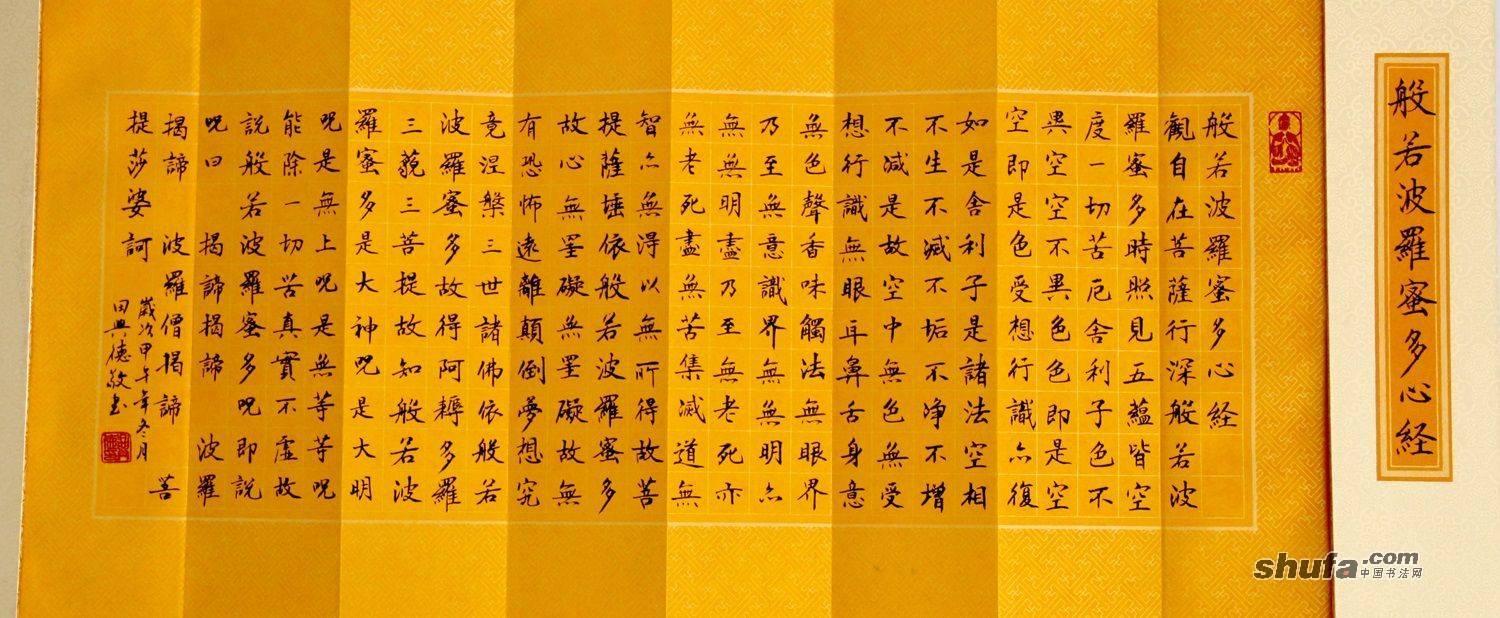 般若波羅蜜多心経
般若波羅蜜多心経
觀自在菩薩行深般若波
羅蜜多時照見五蘊皆空
度一切苦厄舍利子色不
異空空不異色色即是空
空即是色受想行識亦復
如是舍利子是諸法空相
不生不滅不垢不净不增
不减是故空中無色無受
想行識無眼耳鼻舌身意
無色聲香味觸法無眼界
乃至無意識界無無明亦
無無明盡乃至無老死亦
無老死盡無苦集滅道無
智亦無得以無所得故菩
提薩埵依般若波羅蜜多
故心無罣礙無罣礙故無
有恐怖遠離顛倒夢想究
竟涅槃三世諸佛依般若
波羅蜜多故得阿耨多羅
三藐三菩提故知般若波
羅蜜多是大神呪是大明
呪是無上呪是無等等呪
能除一切苦真實不虛故
說般若波羅蜜多呪即說
呪曰 揭諦揭諦 波羅
揭諦 波羅僧揭諦 菩
提莎婆訶
歲次甲午年冬月
田興德敬书
shufa.com
中国书法网